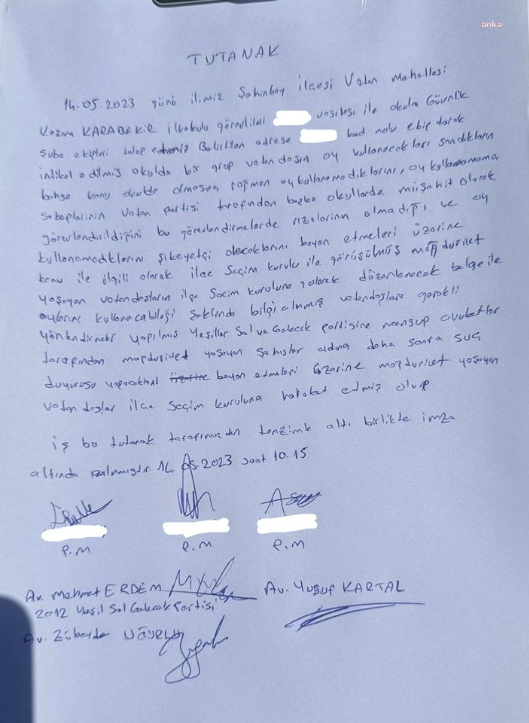 anka
TUTANAK
14.05.2023 günü ilimiz Şahinbey İlçesi Vatan Mahallesi
Kazım KARABEKİR ilkokulu görevlileri vasıtası ile okula Güvenlik
Şube ekipleri talep edilmiş Belirtilen adrese kod nolu ekip olarak
intikal edilmiş okulda bir grup vatandaşın oy kullanacakları sandıkların
bahse konu okulda olmasına rağmen oy kullanamadıklarını, oy kullanamama
sebeplerinin Vatan partisi tarafından başka okullarda müşahit olarak
görevlendirildiğini bu görevlendirmelerde rızalarının olmadığı ve oy
kullanamadıkların şikayetçi olacaklarını beyan etmeleri üzerine
konu ile ilgili olarak ilçe Seçim kurulu ile görüşülmüş mağduriyet
yaşayan vatandaşların ilçe Seçim kuruluna giderek düzenlenecek belge ile
oylarını kullanacabileği şeklinde bilgi alınmış vatandaşlara gerekli
yönlendirmeler yapılmış Yeşiller Sol ve Gelecek partisine mensup avukatlar
tarafından mağduriyet yaşayan şahıslar adına daha sonra suç
duyurusu yapacakları beyan etmeleri üzerine mağduriyet yaşayan
vatandaşlar ilçe Seçim kuruluna hareket etmiş olup
iş bu tutanak tarafımızdan tanzimle altı birlikte imza
altında alınmıştır. 14.05.2023 saat 10.15
P.M P.M P.M
Av. Mehmet ERDEM Av. Yusuf KARTAL
2012 Yeşil Sol Gelecek Partisi
Av. Zübeyde UĞURLU